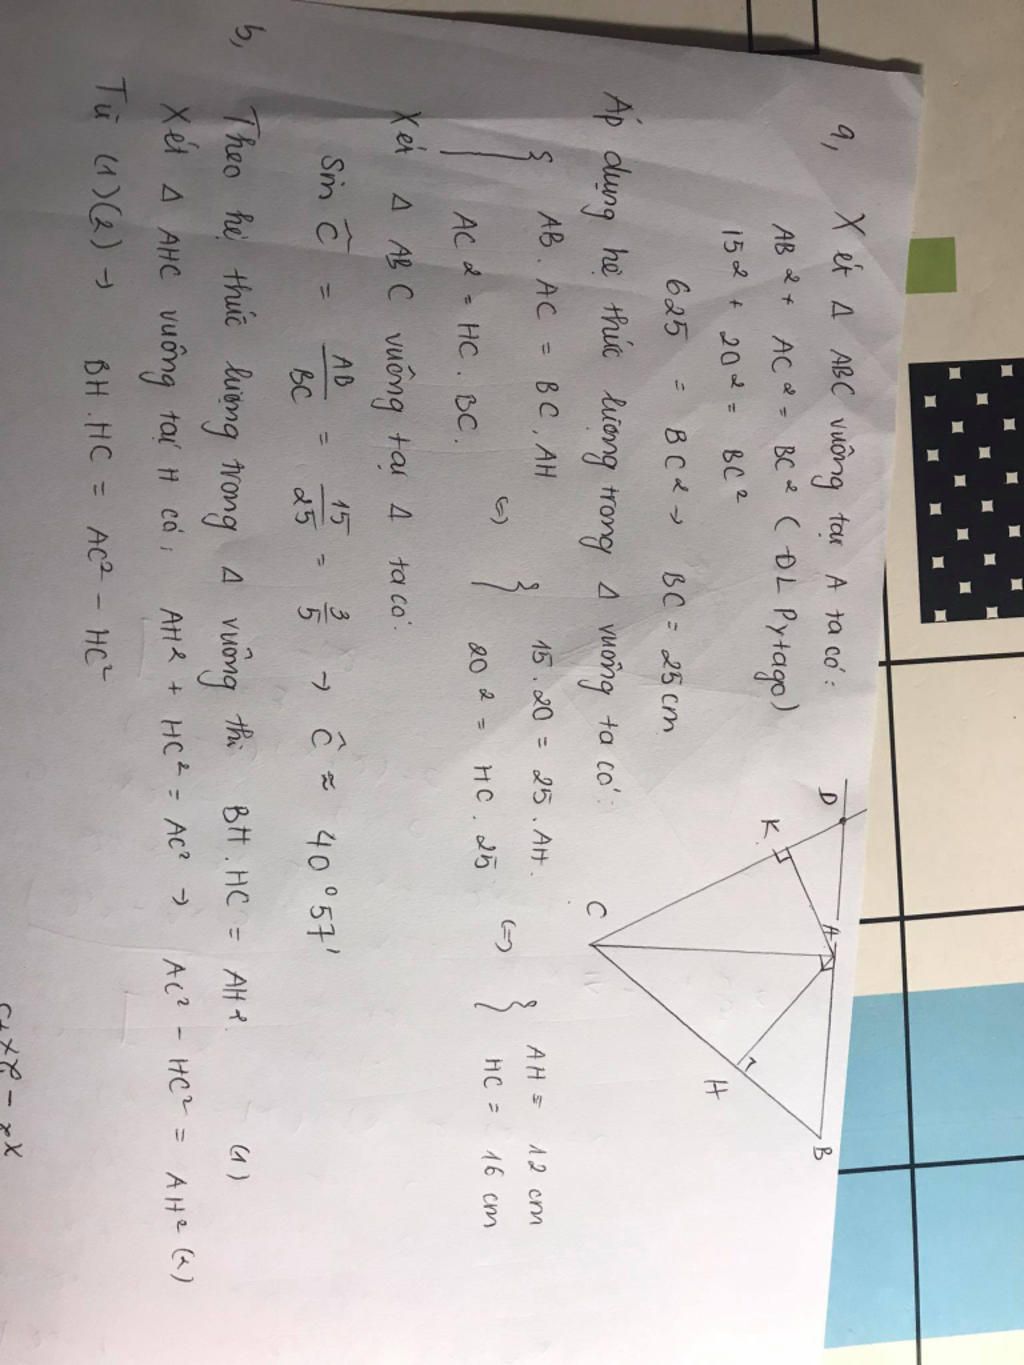 a,
Xét Δ ABC vuông tại A ta có:
AB² + AC² = BC² (DL Pytago)
15² + 20² = BC²
625 = BC² → BC = 25 cm
Áp dụng hệ thức lượng trong Δ vuông ta có:
{ AB . AC = BC . AH
AC² = HC . BC.
⇔ { 15 . 20 = 25 . AH.
20² = HC . 25
⇔ { AH = 12 cm
HC = 16 cm
Xét Δ ABC vuông tại Δ ta có:
Sin Ĉ = AB/BC = 15/25 = 3/5 → Ĉ ≈ 40°57'
b,
Theo hệ thức lượng trong Δ vuông thì BH . HC = AH². (1)
Xét Δ AHC vuông tại H có: AH² + HC² = AC² → AC² - HC² = AH² (2)
Từ (1)(2) → BH . HC = AC² - HC²
D
K
A
C
H
B